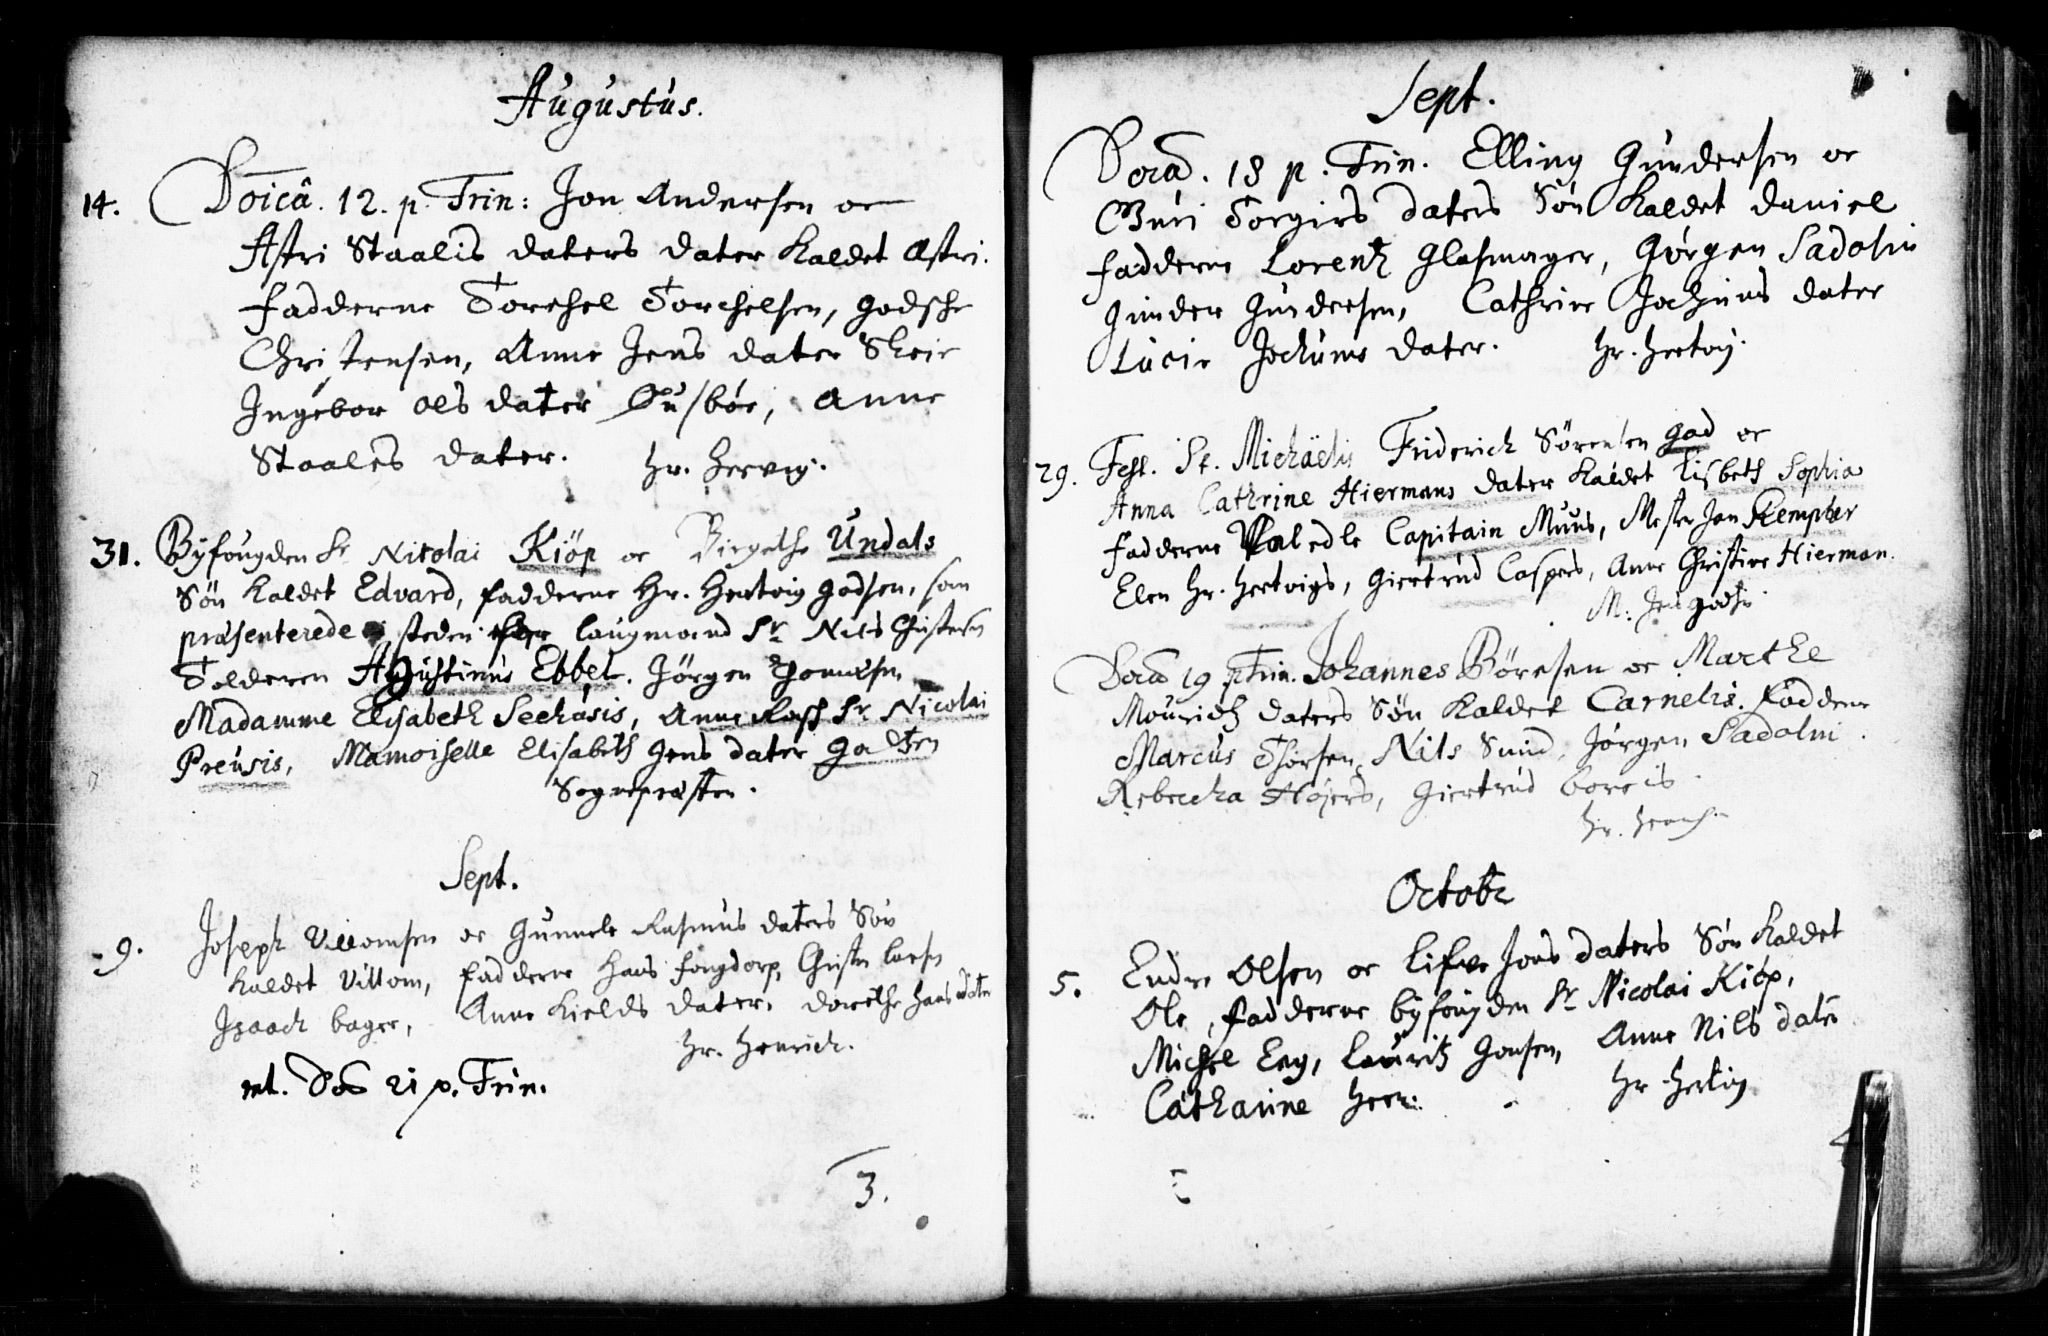 Augustus.
14. Doicâ. 12. p. Trin: Jon Andersen oc
Astri Staalis daters dater kaldet Astri.
fadderne Torchel Torchelsen, Godsche
Christensen, Anne Jens dater Skeie
Ingebor Ols dater Busbøe, Anne
Staales dater. Hr. Hervig.
31. Byfougden Sr Nicolai Kiöp oc Birgethe Undals
Søn kaldet Edvard, fadderne Hr. Hertvig Godsen, som
præsenterede steden laugmand Sr Nils Christensen
Tolderen Augustinus Ebbel. Jörgen Thomæsen
Madamme Elisabeth Seehusis, Anne Rasch Sr Nicolai
Preusis, Mamoiselle Elisabeth Jens dater Godtzen
Sognepræsten.
Sept.
9. Joseph Villomsen oc Gunnele Rasmus daters Søn
kaldet Villom, fadderne Hans Fougdorp, Christen Larsen
Isaach bager, Anne Kields dater, Dorethe Hans dater
Hr. Henrich.
nt. Dos 21 p. Trin.
3.
Sept.
Dorâ. 18 p. Trin. Elling Gundersen oc
Guri Torgirs daters Søn kaldet Daniel
fadderne Lorentz Glasmager, Gørgen Sadolin
Gunder Gundersen, Cathrine Jochums dater
Lucie Jochums dater. Hr. Hertvig.
29. Fest. St. Michäelis Friderich Sørensen Gad oc
Anna Cathrine Hiermans dater kaldet Lisbeth Sophia
fadderne Vel edle Capitain Muus, Mester Jan Kempher
Elen Hr. Hertvigs, Giertrud Caspers, Anne Christine Hierman.
M: Jens Godtzen
Dorâ 19 p Trin. Johannes Börresen oc Marthe
Mouritz daters Søn kaldet Carnelis. Faddere
Marcus Thorsen, Nils Suind, Jørgen Sadolin.
Rebecha Høyers, Giertrud Boreis
Hr. Henrich
Octobr
5. Endre Olsen oc Lifve Jons daters Søn kaldet
Ole, fadderne byfougden Sr Nicolai Kiöp,
Michel Eeg, Lauritz Jonsen, Anne Nils dater
Catharine Heer: Hr Hertvig